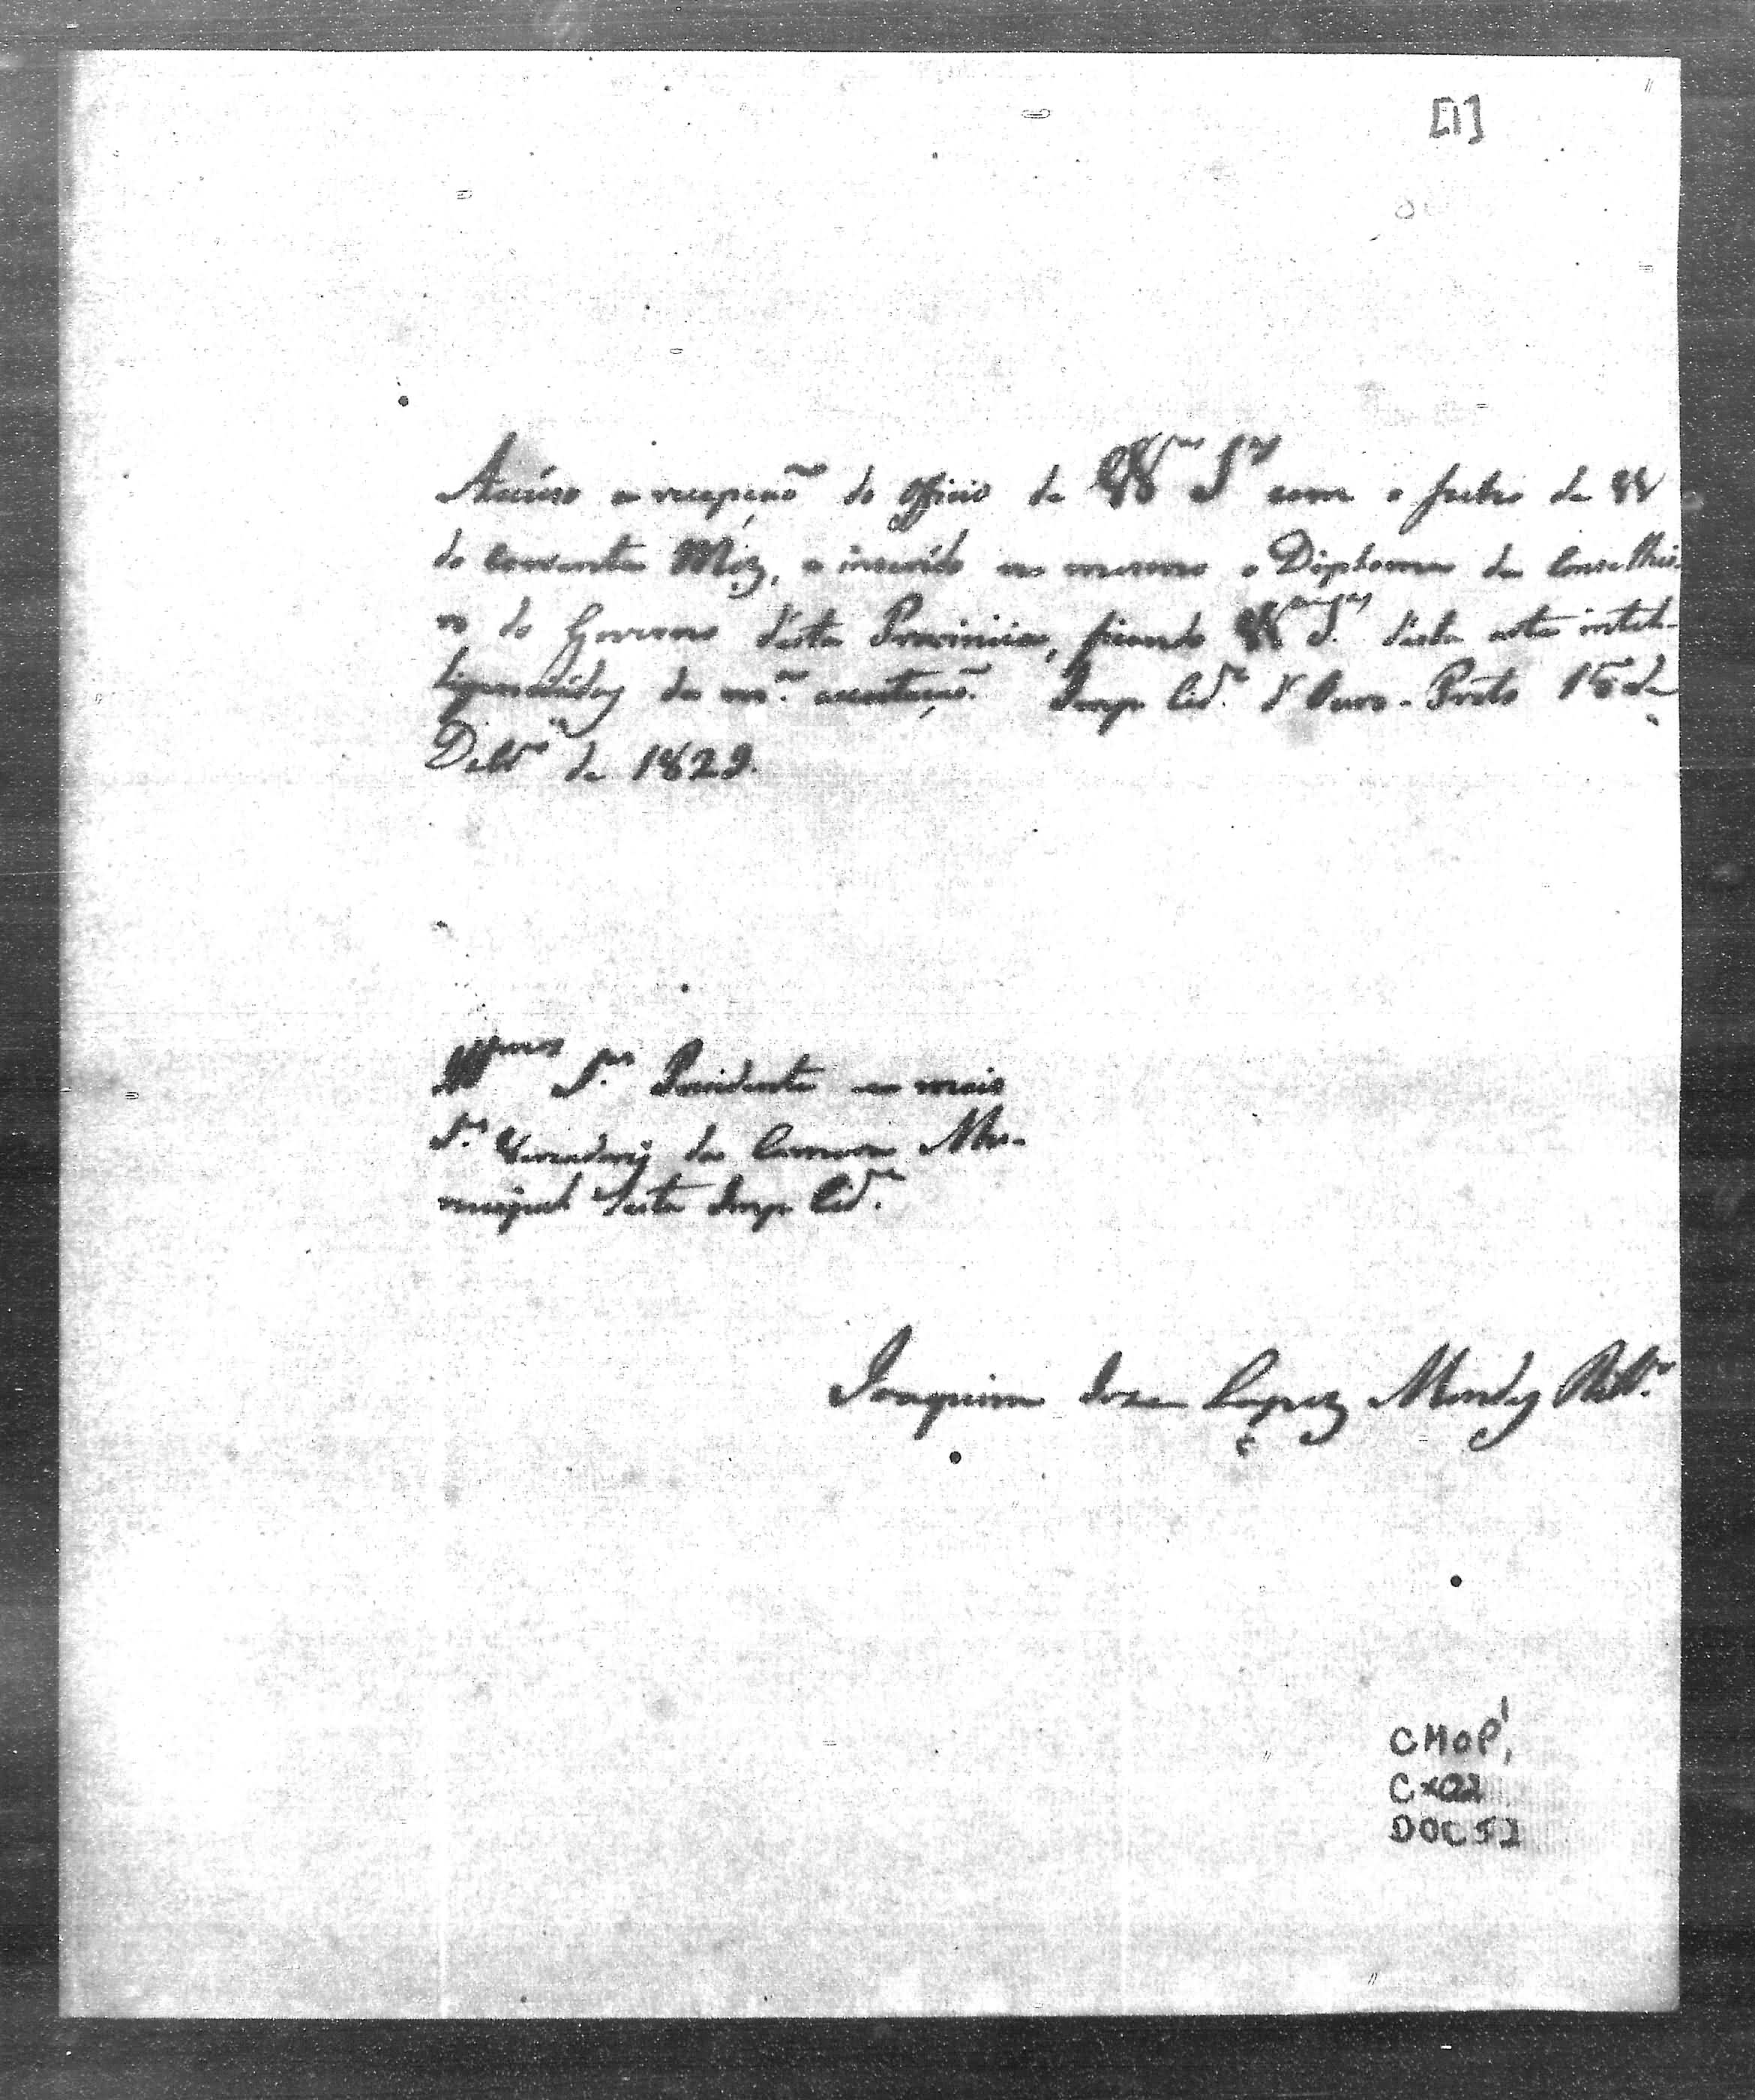 [1]
Accúso a recepçaõ do officio de VV. Sas com o fecho de
do corrente Mez, e incerído no mesmo o Diploma de Conselhei-
ro do Governo desta Provincia, ficando VV. Sas desta arte intel-
ligenciádas da ma. aceitaçaõ. Imp. Cide. d'Ouro-Preto 15 de
Dezbro. de 1829.
Illmos Srs. Presidente e mais
Srs. Vereadores da Camara Mu-
nicipal desta Imp. Cide.
Joaquim Joze Lopez Mendes Ribro.
CMOP
CX02
DOC 52